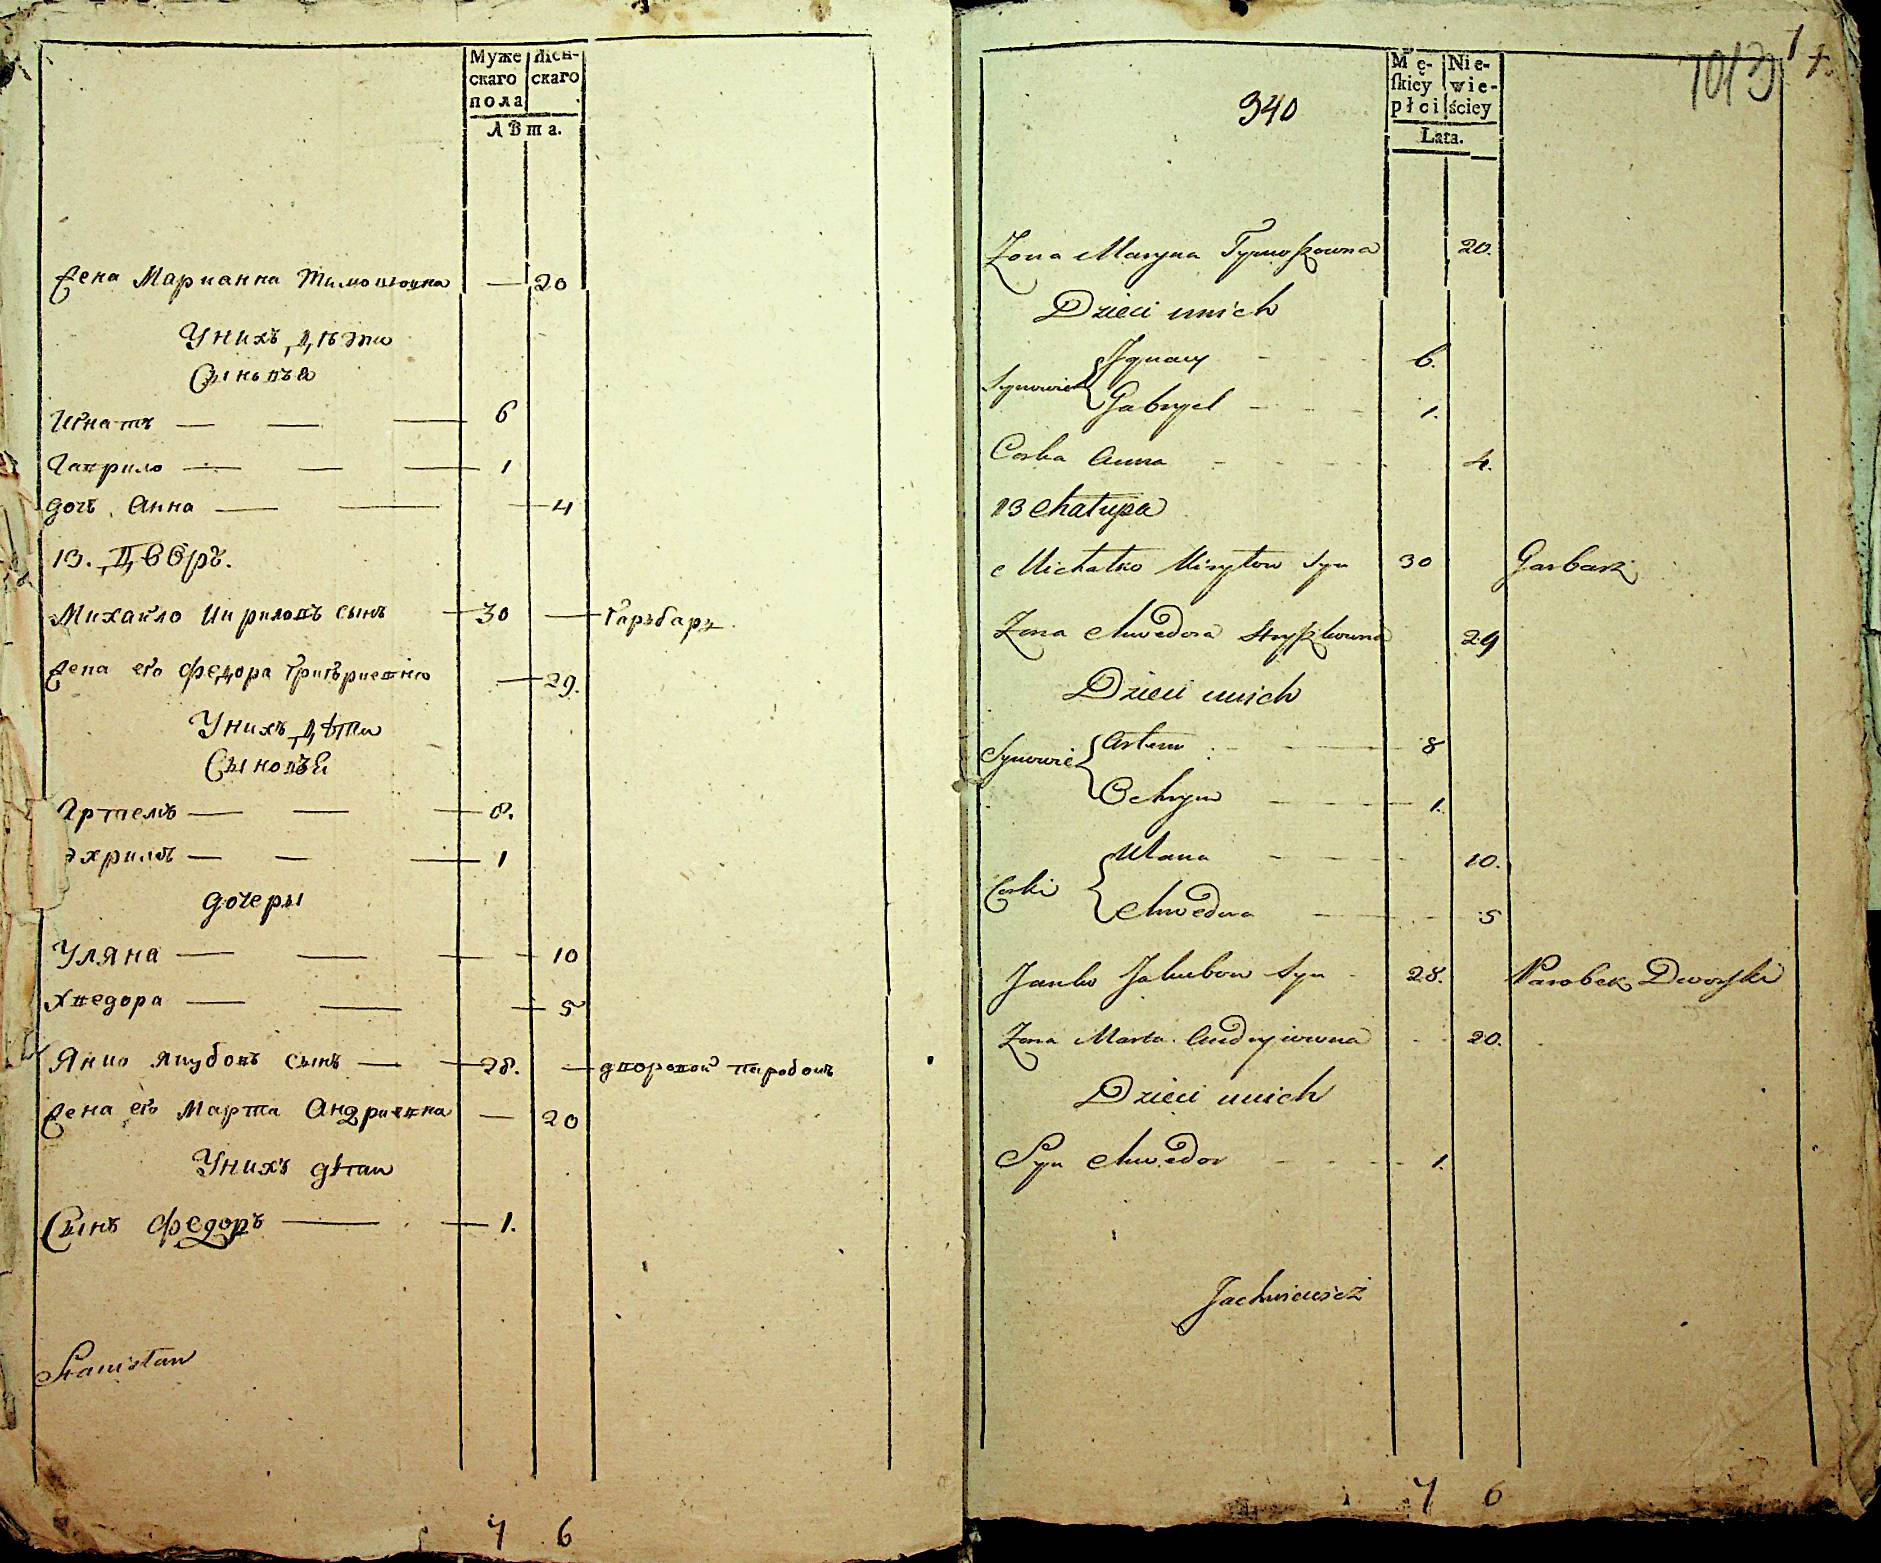 Муже
скаго
пола
Жен-
скаго
Лѣта.
Жена Марианна Тимошовна — 20
У нихъ дѣти
Сыновья
Игнатъ — — — 6
Гаврило — — — 1
дочь Анна — — — 4
13. Дворъ.
Михайло Кириловъ сынъ — 30 — Гарбарь.
Жена его Федора Григориевна — 29.
У нихъ дѣти
Сыновья
Артемъ — — — 8.
Охримъ — — — 1
дочеры
Уляна — — — 10
Хведора — — — 5
Янко Якубовъ сынъ — 28. — дворовой паробокъ
Жена его Марта Андриевна — 20
У нихъ дѣти
Сынъ Федоръ — — 1.
Stanisław
7 6
1013
340
Mę-
skiey
płci
Nie-
wie-
ściey
Lata.
Zona Maryna Tymoszowna 20.
Dzieci u nich
Synowie { Jgnacy - - 6.
Gabryel - - 1.
Corka Anna - - 4.
13 Chałupa
Michałko Kiryłow Syn 30 Garbarz
Zona Chwedora Hryszkowna 29
Dzieci u nich
Synowie { Artem - - 8
Ochrym - - 1.
Corki { Ulana - - 10.
Chwedora - - 5
Janko Jakubow Syn - 28. Parobek Dworski
Zona Marta Andryiowna - 20.
Dzieci u nich
Syn Chwedor - - 1.
Jachniewicz
7 6